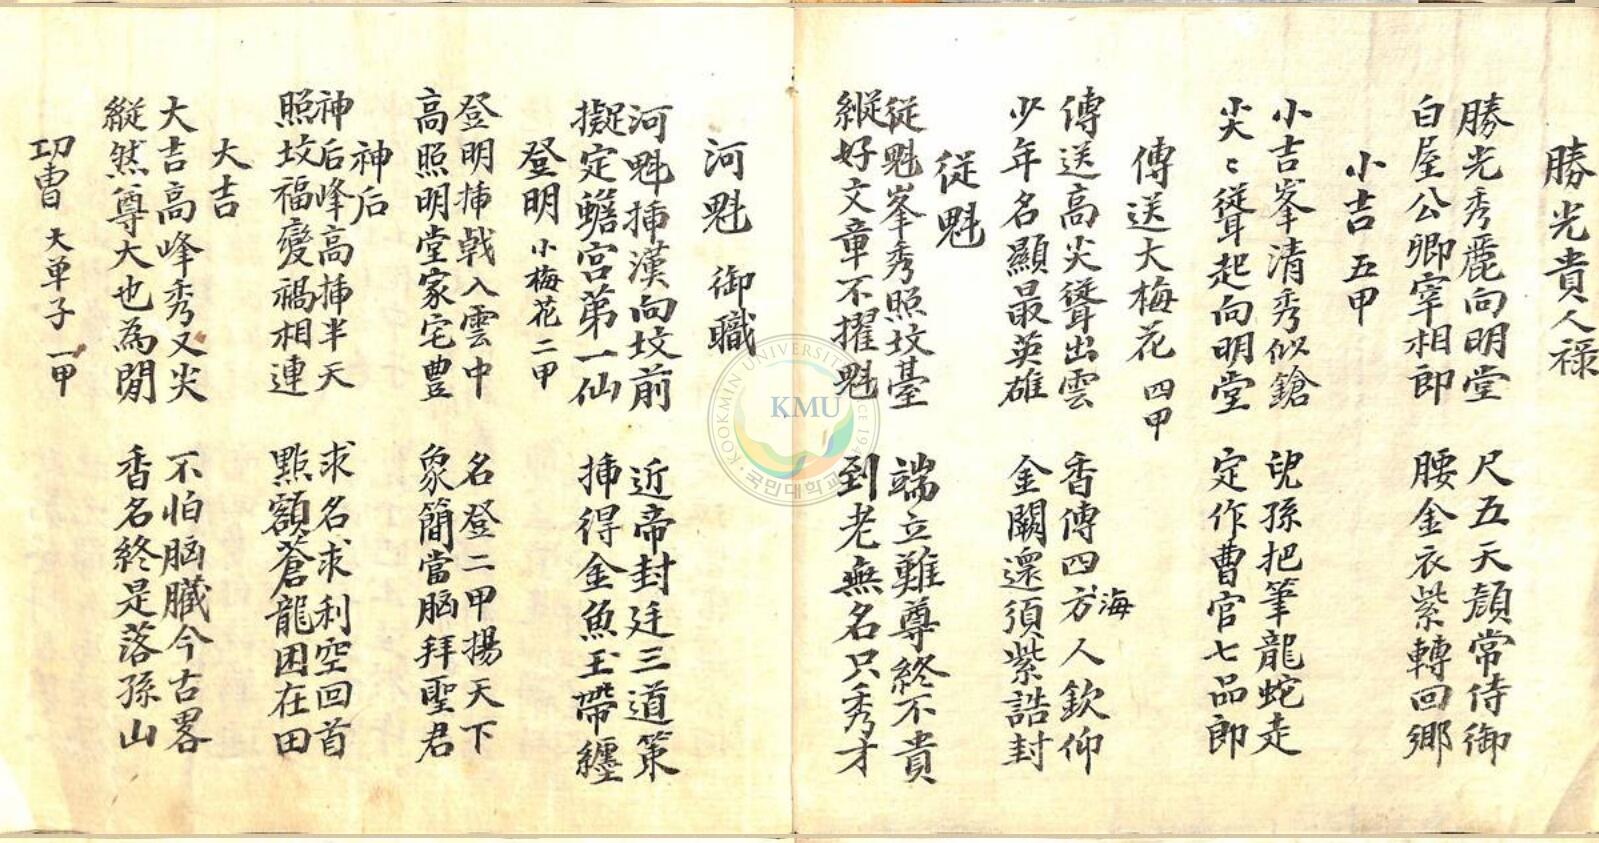 勝光貴人祿
勝光秀麗向明堂 尺五天顔常侍御
白屋公卿宰相郎 腰金衣紫轉回鄉
小吉 五甲
小吉峯清秀似鎗 兒孫把筆龍蛇走
尖尖〻聳起向明堂 定作曹官七品郎
傳送大梅花 四甲
傳送高尖聳出雲 香傳四方海人欽仰
少年名顯最英雄 金闕還須紫誥封
從魁
從魁峯秀照坟臺 端立難尊終不貴
縱好文章不擢魁 到老無名只秀才
河魁 御職
河魁揷漢向坟前 近帝封廷三道策
擬定蟾宮第一仙 揷得金魚玉帶纏
登明 小梅花二甲
登明揷戟入雲中 名登二甲揚天下
高照明堂家宅豊 象簡當脳拜聖君
神后
神后峰高揷半天 求名求利空回首
照坟福變禍相連 點額蒼龍困在田
大吉
大吉高峰秀又尖 不怕脳臟今古畧
縱然尊大也為閒 香名終是落孫山
功曺 大单子一甲
KOOKMIN UNIVERSITY SINCE 1946
KMU
국민대학교